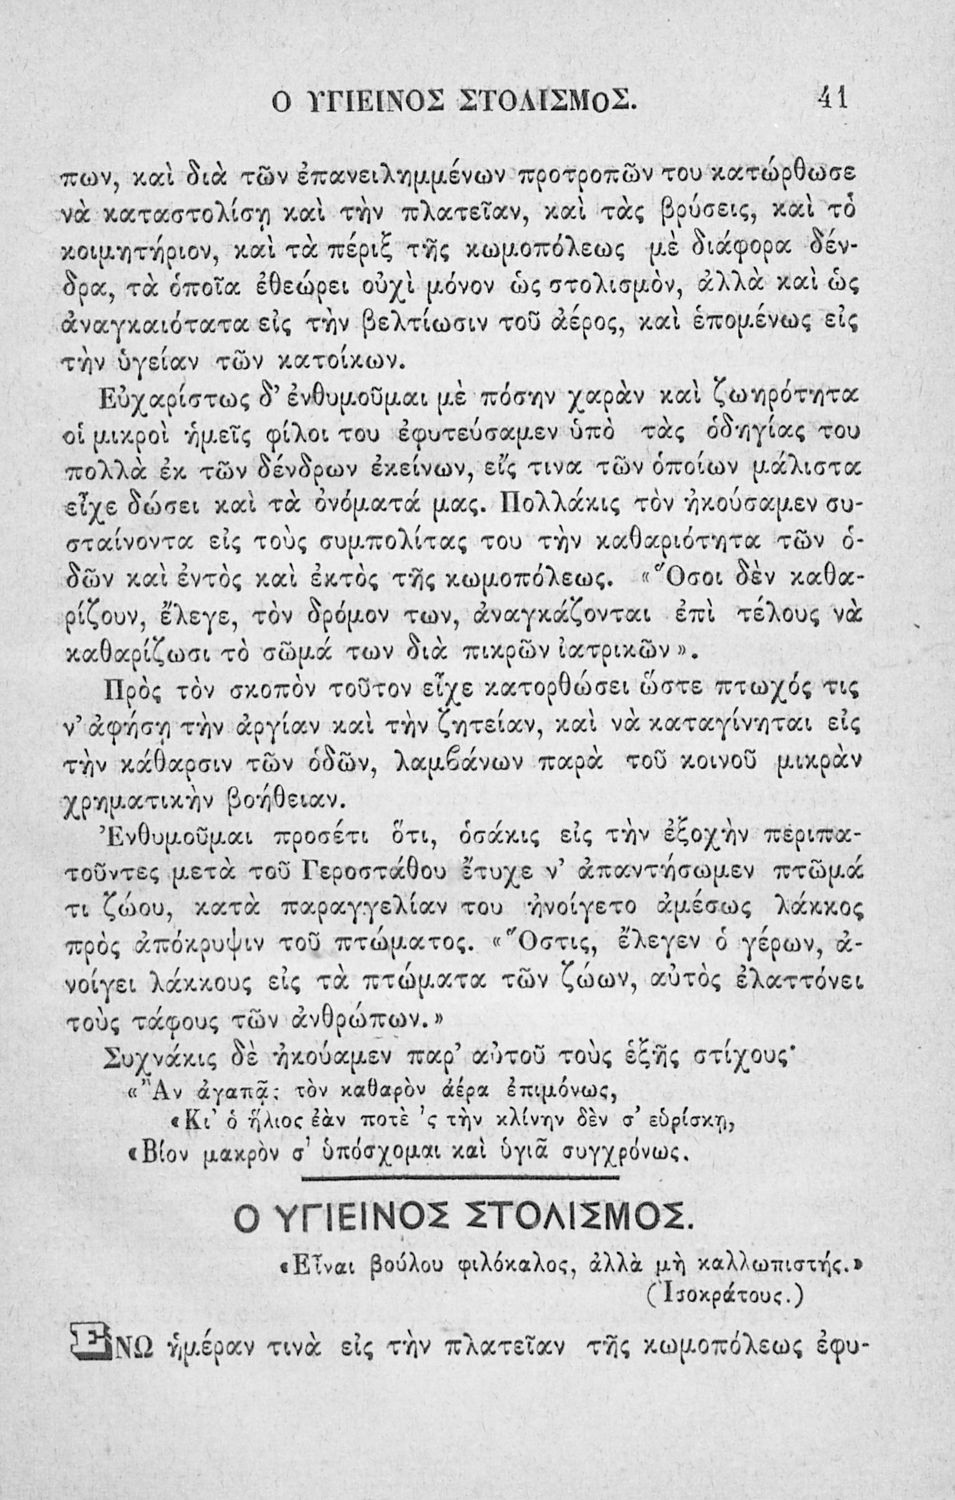 Ο ΥΓΙΕΙΝΟΣ ΣΤΟΛΙΣΜΟΣ. 41
πων, καὶ διὰ τῶν ἐπανειλημμένων προτροπῶν του κατώρθωσε
νὰ καταστολίσῃ καὶ τὴν πλατεῖαν, καὶ τὰς βρύσεις, καὶ τὸ
κοιμητήριον, καὶ τὰ πέριξ τῆς κωμοπόλεως μὲ διάφορα δέν-
δρα, τὰ ὁποῖα ἐθεώρει οὐχὶ μόνον ὡς στολισμὸν, ἀλλὰ καὶ ὡς
ἀναγκαιότατα εἰς τὴν βελτίωσιν τοῦ ἀέρος, καὶ ἑπομένως εἰς
τὴν ὑγείαν τῶν κατοίκων.
Εὐχαρίστως δ' ἐνθυμοῦμαι μὲ πόσην χαρὰν καὶ ζωηρότητα
οἱ μικροὶ ἡμεῖς φίλοι του ἐφυτεύσαμεν ὑπὸ τὰς ὁδηγίας του
πολλὰ ἐκ τῶν δένδρων ἐκείνων, εἴς τινα τῶν ὁποίων μάλιστα
εἶχε δώσει καὶ τὰ ὀνόματά μας. Πολλάκις τὸν ἠκούσαμεν συ-
σταίνοντα εἰς τοὺς συμπολίτας του τὴν καθαριότητα τῶν ὁ-
δῶν καὶ ἐντὸς καὶ ἐκτὸς τῆς κωμοπόλεως. «Ὅσοι δὲν καθα-
ρίζουν, ἔλεγε, τὸν δρόμον των, ἀναγκάζονται ἐπὶ τέλους νὰ
καθαρίζωσι τὸ σῶμά των διὰ πικρῶν ἰατρικῶν».
Πρὸς τὸν σκοπὸν τοῦτον εἶχε κατορθώσει ὥστε πτωχός τις
ν' ἀφήσῃ τὴν ἀργίαν καὶ τὴν ζητείαν, καὶ νὰ καταγίνηται εἰς
τὴν κάθαρσιν τῶν ὁδῶν, λαμϐάνων παρὰ τοῦ κοινοῦ μικρὰν
χρηματικὴν βοήθειαν.
Ἐνθυμοῦμαι προσέτι ὅτι, ὁσάκις εἰς τὴν ἐξοχὴν περιπα-
τοῦντες μετὰ τοῦ Γεροστάθου ἔτυχε ν' ἀπαντήσωμεν πτῶμά
τι ζώου, κατὰ παραγγελίαν του ἠνοίγετο ἀμέσως λάκκος
πρὸς ἀπόκρυψιν τοῦ πτώματος. «Ὅστις, ἔλεγεν ὁ γέρων, ἀ-
νοίγει λάκκους εἰς τὰ πτώματα τῶν ζώων, αὐτὸς ἐλαττόνει
τοὺς τάφους τῶν ἀνθρώπων.»
Συχνάκις δὲ ἠκούαμεν παρ' αὐτοῦ τοὺς ἑξῆς στίχους·
«Ἂν ἀγαπᾷς τὸν καθαρὸν ἀέρα ἐπιμόνως,
«Κι' ὁ ἥλιος ἐὰν ποτὲ 'ς τὴν κλίνην δὲν σ' εὑρίσκῃ,
«Βίον μακρὸν σ' ὑπόσχομαι καὶ ὑγιᾶ συγχρόνως.
Ο ΥΓΙΕΙΝΟΣ ΣΤΟΛΙΣΜΟΣ.
«Εἶναι βούλου φιλόκαλος, ἀλλὰ μὴ καλλωπιστής.»
(Ἰσοκράτους.)
ΕΝΩ ἡμέραν τινὰ εἰς τὴν πλατεῖαν τῆς κωμοπόλεως ἐφυ-